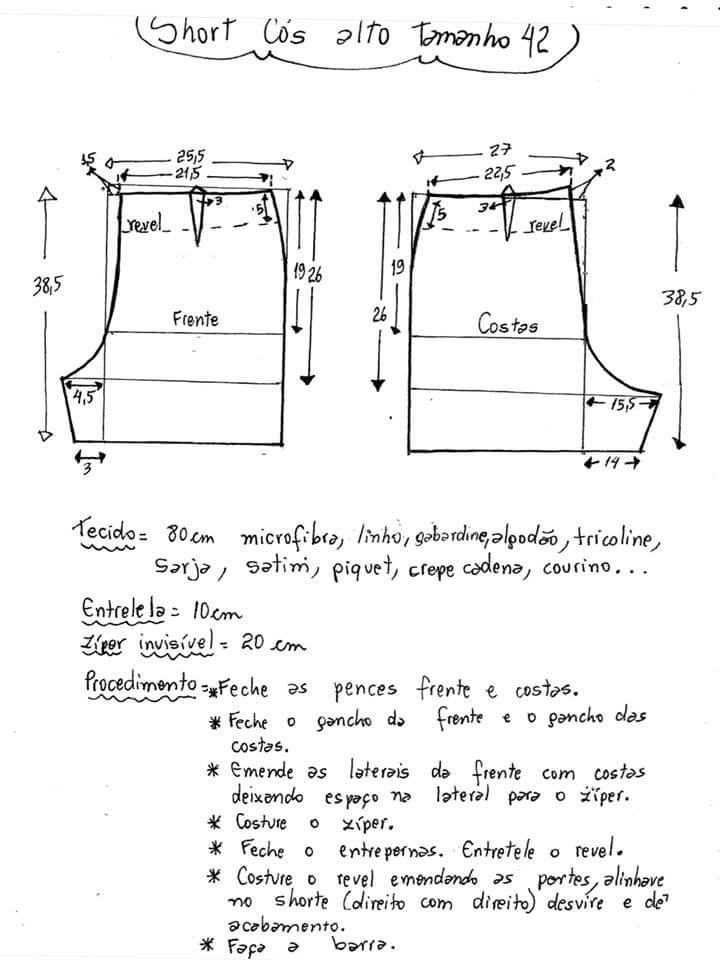 Short Cós alto tamanho 42
1,5
25,5
21,5
3
5
revel
19 26
38,5
Frente
4,5
3
27
2
22,5
3
5
revel
19
26
38,5
Costas
15,5
14
Tecido = 80cm microfibra, linho, gabardine, algodão, tricoline,
sarja, setim, piquet, crepe cadena, courino...
Entretela = 10cm
Zíper invisível = 20 cm
Procedimento = * Feche as pences frente e costas.
* Feche o gancho da frente e o gancho das
costas.
* Emende as laterais da frente com costas
deixando espaço na lateral para o zíper.
* Costure o zíper.
* Feche o entrepernas. Entretele o revel.
* Costure o revel emendando as partes, alinhave
no shorte (direito com direito) desvire e dê
acabamento.
* Faça a barra.